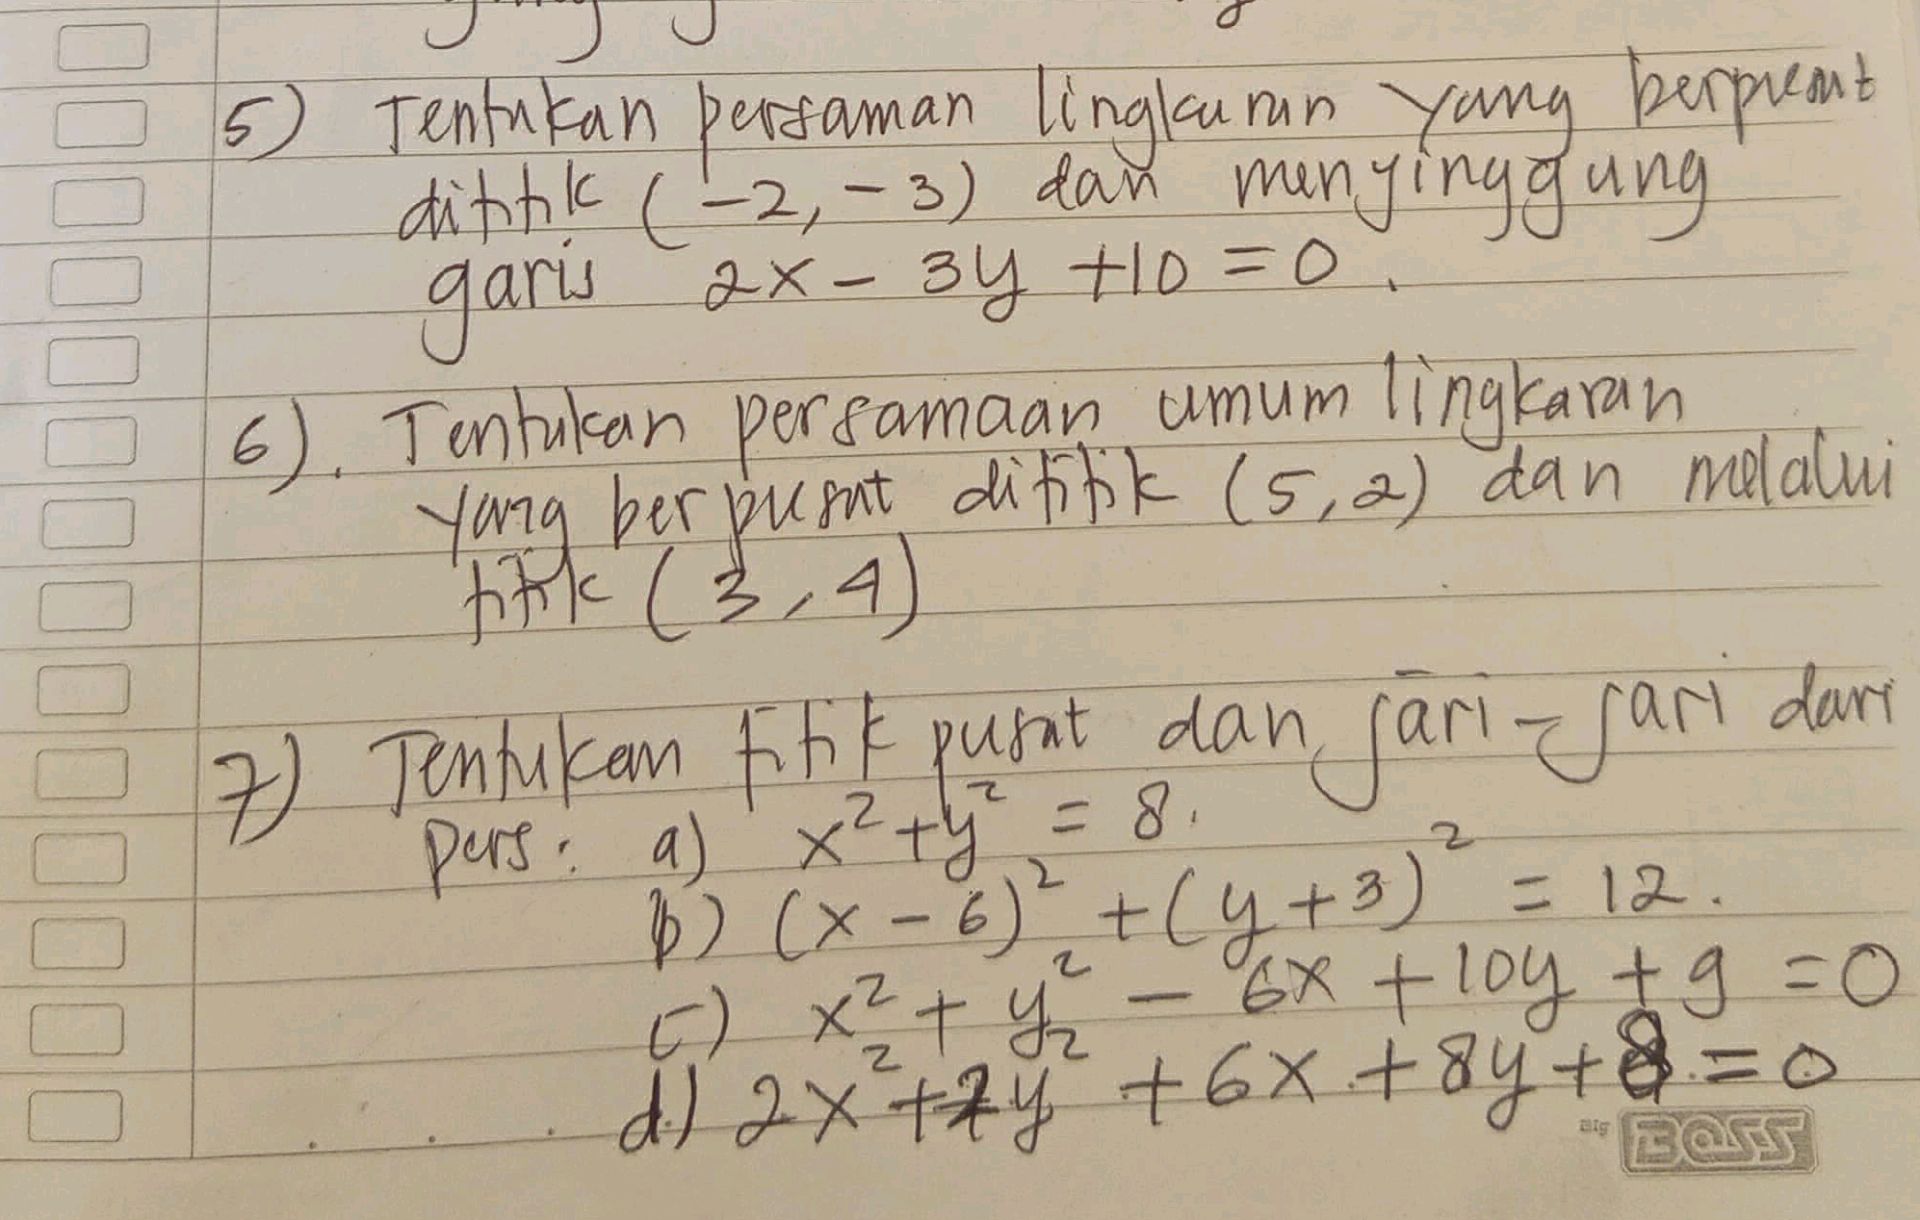 5) Tentukan persaman lingkuran yang berpusat
dititik (-2, -3) dan menyinggung
garis 2x - 3y +10 = 0.
6). Tentukan persamaan umum lingkaran
yang berpusat dititik (5, 2) dan melalui
titik (3, 4)
7) Tentukan titik pusat dan jari - jari dari
pers: a) x² + y² = 8.
b) (x - 6)² + (y + 3)² = 12.
c) x² + y² - 6x + 10y + 9 = 0
d.) 2x² + 2y² + 6x + 8y + 8 = 0
Big BOSS